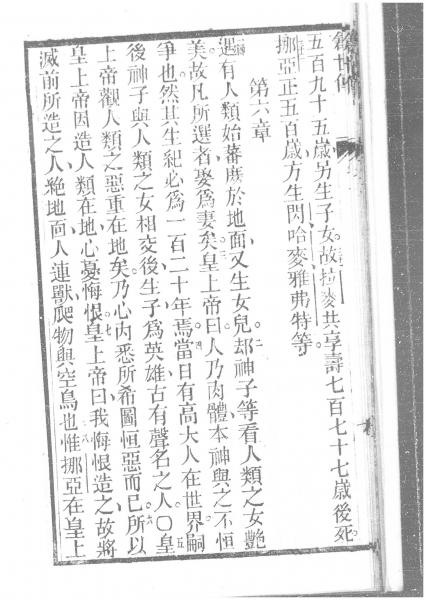 創世傳
五百九十五歲另生子女。故拉麥共享壽七百七十七歲後死。
挪亞正五百歲方生閃、哈麥、雅弗特等。
第六章
遇有人類始蕃庶於地面、又生女兒、二却神子等看人類之女艷
美、故凡所選者娶為妻矣。三皇上帝曰、人乃肉體、本神與之不恒
爭也、然其生紀必為一百二十年焉。四當日有高大人在世界、嗣
後神子與人類之女相交後、生子為英雄、古有聲名之人。○五皇
上帝觀人類之惡重在地矣、乃心內悉所希圖恒惡而已。六所以
皇上帝因造人類在地、心憂悔恨。七皇上帝曰、我悔恨造之、故將
滅前所造之人、絕地面人連獸爬物與空鳥也。八惟挪亞在皇上